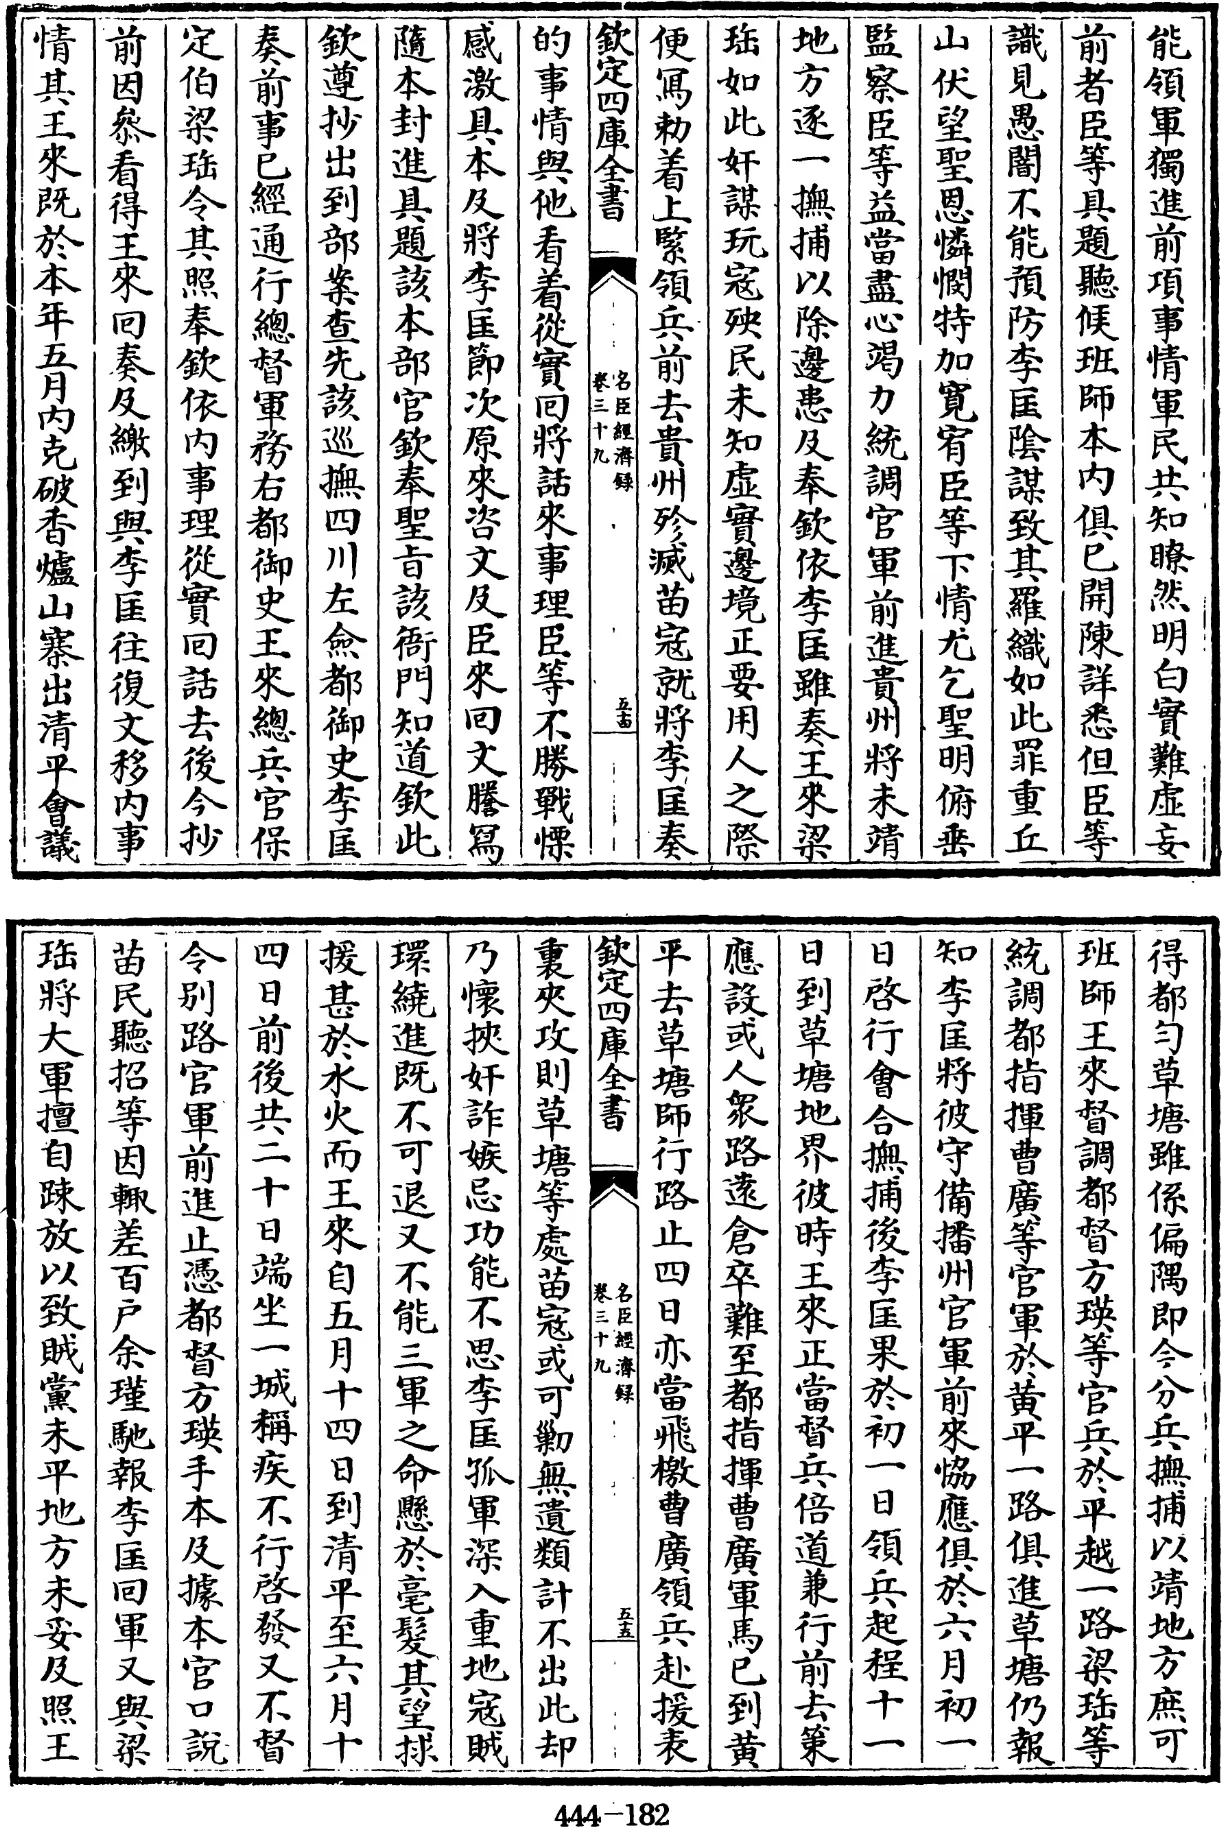 能領軍獨進前項事情軍民共知瞭然明白實難虛妄
前者臣等具題聽候班師本内俱已開陳詳悉但臣等
識見愚闇不能預防李匡陰謀致其羅織如此罪重丘
山伏望聖恩憐憫特加寛宥臣等下情尤乞聖明俯垂
監察臣等益當盡心竭力統調官軍前進貴州將未靖
地方逐一撫捕以除邊患及奉欽依李匡雖奏王來梁
珤如此奸謀玩寇殃民未知虛實邊境正要用人之際
便寫勅着上緊領兵前去貴州殄滅苗寇就將李匡奏
欽定四庫全書
名臣經濟録
卷三十九
五十四
的事情與他看着從實回將話來事理臣等不勝戰慄
感激具本及將李匡節次原來咨文及臣來回文謄寫
隨本封進具題該本部官欽奉聖旨該衙門知道欽此
欽遵抄出到部案查先該廵撫四川左僉都御史李匡
奏前事已經通行總督軍務右都御史王來總兵官保
定伯梁珤令其照奉欽依内事理從實回話去後今抄
前因叅看得王來回奏及繳到與李匡往復文移内事
情其王來既於本年五月内克破香爐山寨出清平會議
得都匀草塘雖係偏隅即今分兵撫捕以靖地方庶可
班師王來督調都督方瑛等官兵於平越一路梁珤等
統調都指揮曹廣等官軍於黄平一路俱進草塘仍報
知李匡將彼守備播州官軍前來恊應俱於六月初一
日啓行會合撫捕後李匡果於初一日領兵起程十一
日到草塘地界彼時王來正當督兵倍道兼行前去策
應設或人衆路逺倉卒難至都指揮曹廣軍馬已到黄
平去草塘師行路止四日亦當飛檄曹廣領兵赴援表
欽定四庫全書
名臣經濟録
卷三十九
五十五
裏夾攻則草塘等處苗寇或可勦無遺類計不出此却
乃懷挾奸詐嫉忌功能不思李匡孤軍深入重地寇賊
環繞進既不可退又不能三軍之命懸於毫髮其望捄
援甚於水火而王來自五月十四日到清平至六月十
四日前後共二十日端坐一城稱疾不行啓發又不督
令别路官軍前進止憑都督方瑛手本及據本官口說
苗民聽招等因輒差百户余瑾馳報李匡回軍又與梁
珤將大軍擅自疎放以致賊黨未平地方未妥及照王
444-182